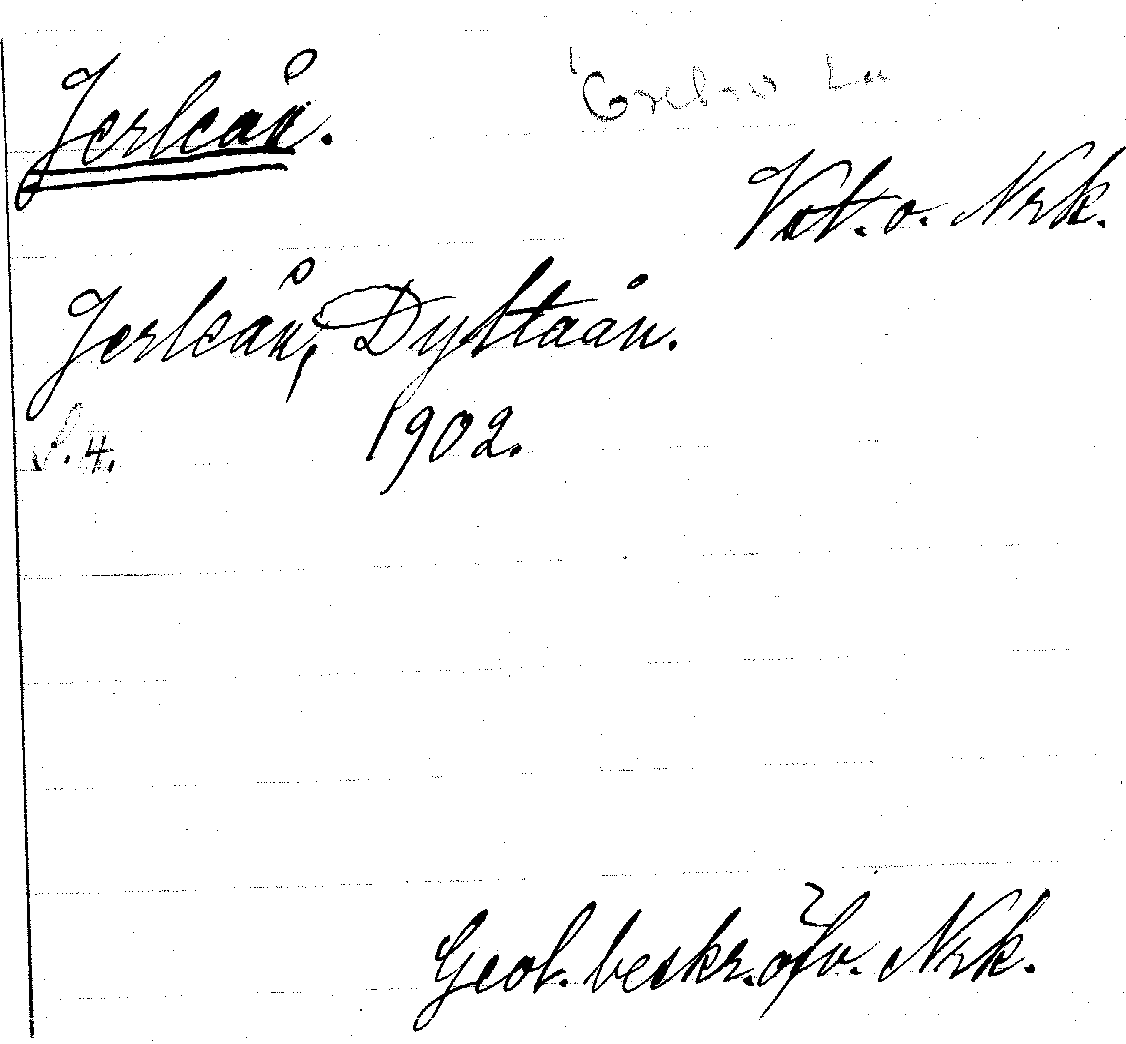 Jerleån.
Örebro Lä
Vstm. o. Nrk.
Jerleån, Dyltaån.
S. 4. 1902.
Geol. beskr. öfv. Nrk.